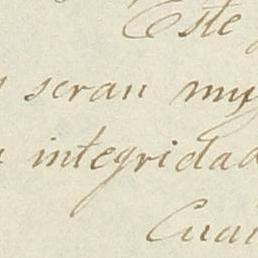 Este
seran muy
integridad